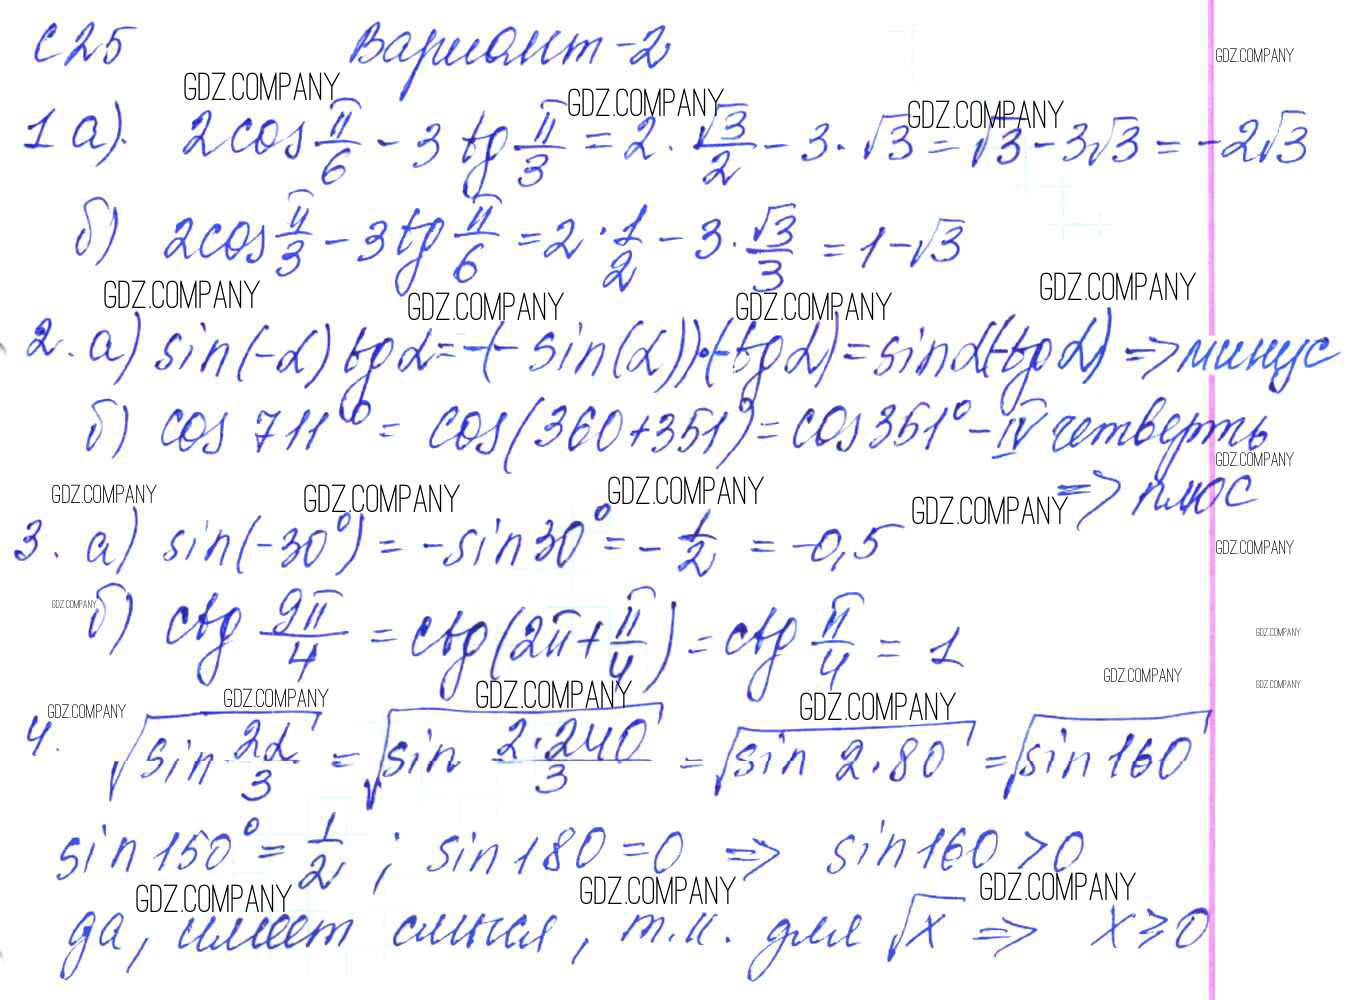 С25 Вариант-2
GDZ.COMPANY GDZ.COMPANY GDZ.COMPANY GDZ.COMPANY
1 а). 2cos π/6 - 3 tg π/3 = 2 · √3/2 - 3 · √3 = √3 - 3√3 = -2√3
б) 2cos π/3 - 3 tg π/6 = 2 · 1/2 - 3 · √3/3 = 1 - √3
GDZ.COMPANY GDZ.COMPANY GDZ.COMPANY GDZ.COMPANY
2. а) sin(-α) tg α = -(- sin(α)) · (-tg α) = sin α(-tg α) => минус
б) cos 711° = cos(360+351°) = cos 351° - IV четверть
GDZ.COMPANY
=> плюс
GDZ.COMPANY GDZ.COMPANY GDZ.COMPANY GDZ.COMPANY
3. а) sin(-30°) = -sin 30° = - 1/2 = -0,5
GDZ.COMPANY
б) ctg 9π/4 = ctg(2π + π/4) = ctg π/4 = 1
GDZ.COMPANY GDZ.COMPANY
GDZ.COMPANY GDZ.COMPANY
GDZ.COMPANY GDZ.COMPANY GDZ.COMPANY GDZ.COMPANY
4. √(sin 2α/3) = √(sin 2·240/3) = √(sin 2·80) = √(sin 160)
sin 150° = 1/2 ; sin 180 = 0 => sin 160 > 0
GDZ.COMPANY GDZ.COMPANY GDZ.COMPANY
да, имеет смысл, т.к. для √x => x ≥ 0